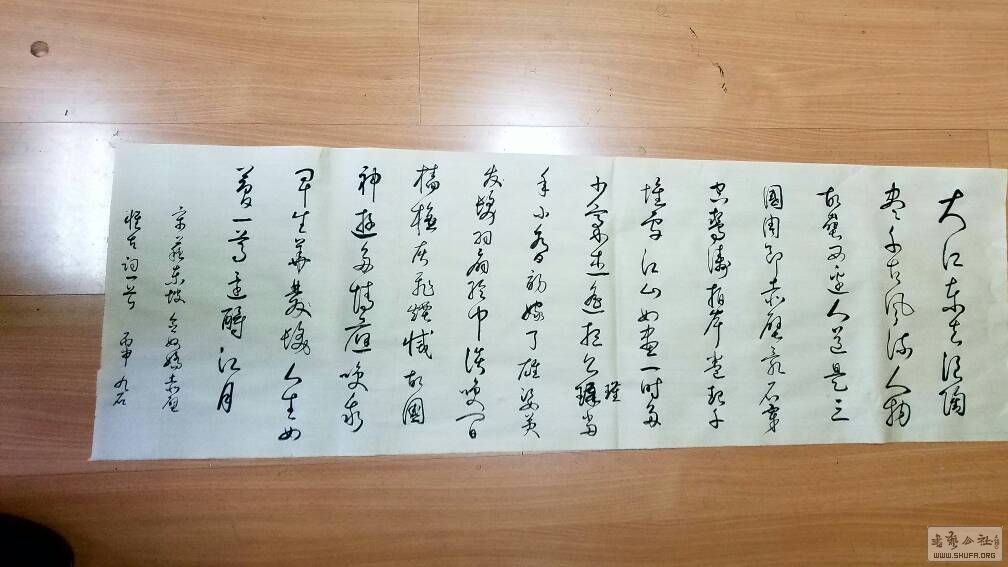 大江东去浪淘
尽千古风流人物
故垒西边人道是三
国周郎赤壁乱石穿
空惊涛拍岸卷起千
堆雪江山如画一时多
少豪杰遥想公瑾当
瑾
年小乔初嫁了雄姿英
发羽扇纶巾谈笑间
樯橹灰飞烟灭故国
神游多情应笑我
早生华发人生如
梦一尊还酹江月
宋苏东坡念奴娇赤壁
怀古词一首 丙申 九石
书艺公社
WWW.SHUFA.ORG